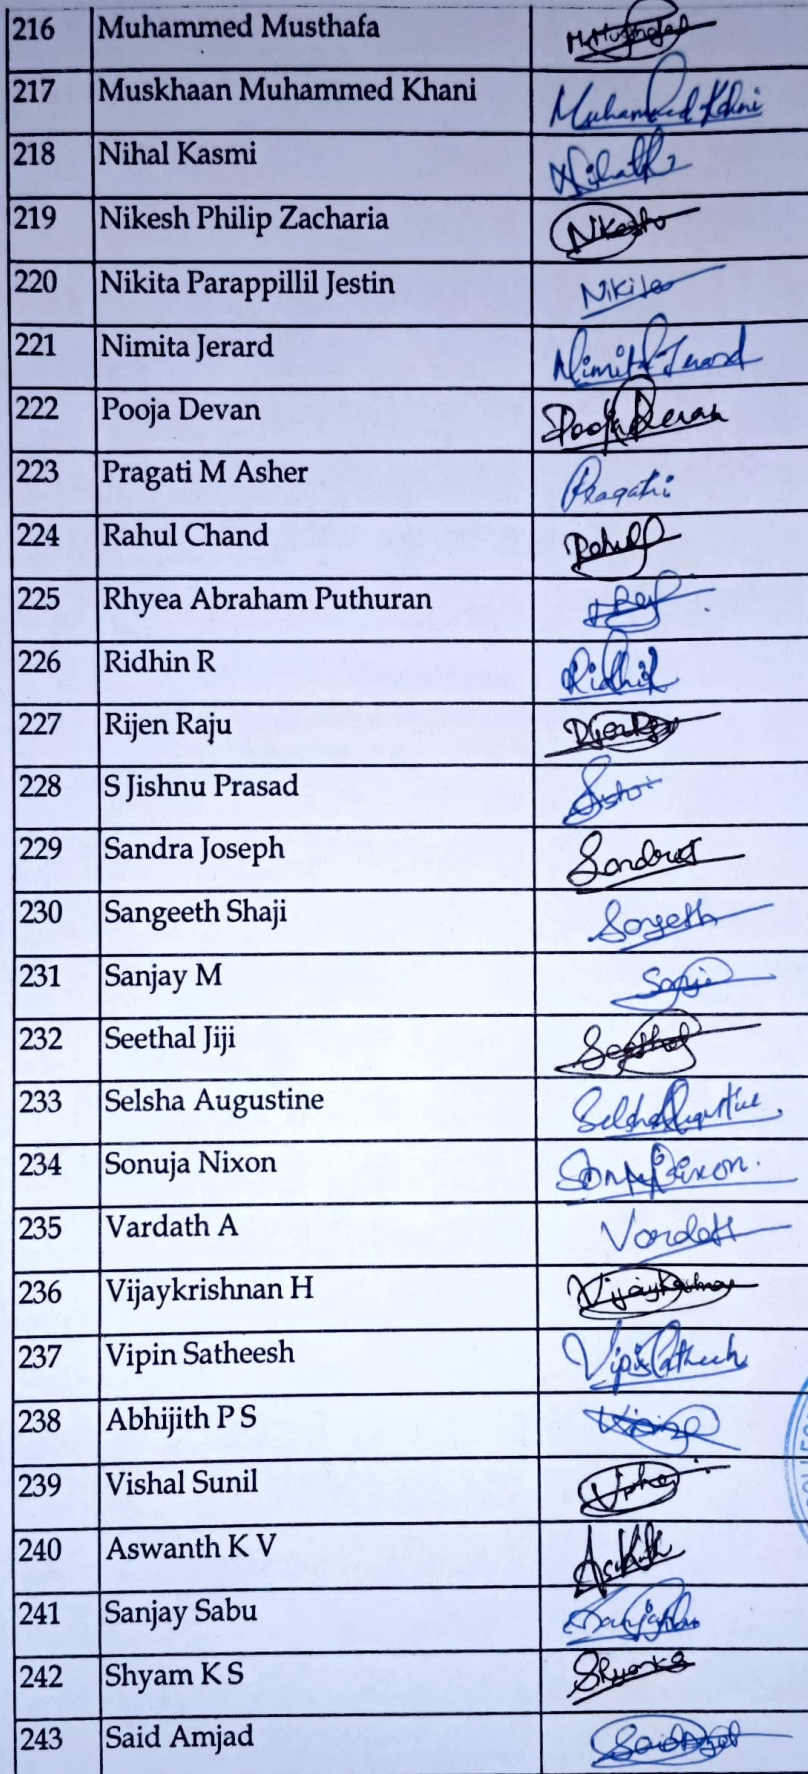 216 Muhammed Musthafa
217 Muskhaan Muhammed Khani Muhammed Khni
218 Nihal Kasmi
219 Nikesh Philip Zacharia Nikesh
220 Nikita Parappillil Jestin Nikita
221 Nimita Jerard Nimita Jerard
222 Pooja Devan Pooja Devan
223 Pragati M Asher Pragathi
224 Rahul Chand Rahul
225 Rhyea Abraham Puthuran
226 Ridhin R Ridhin
227 Rijen Raju
228 S Jishnu Prasad
229 Sandra Joseph Sandra
230 Sangeeth Shaji
231 Sanjay M
232 Seethal Jiji Seethal
233 Selsha Augustine Selsha Augustine
234 Sonuja Nixon
235 Vardath A Vardath
236 Vijaykrishnan H
237 Vipin Satheesh Vipin Satheesh
238 Abhijith P S
239 Vishal Sunil
240 Aswanth K V
241 Sanjay Sabu
242 Shyam K S
243 Said Amjad